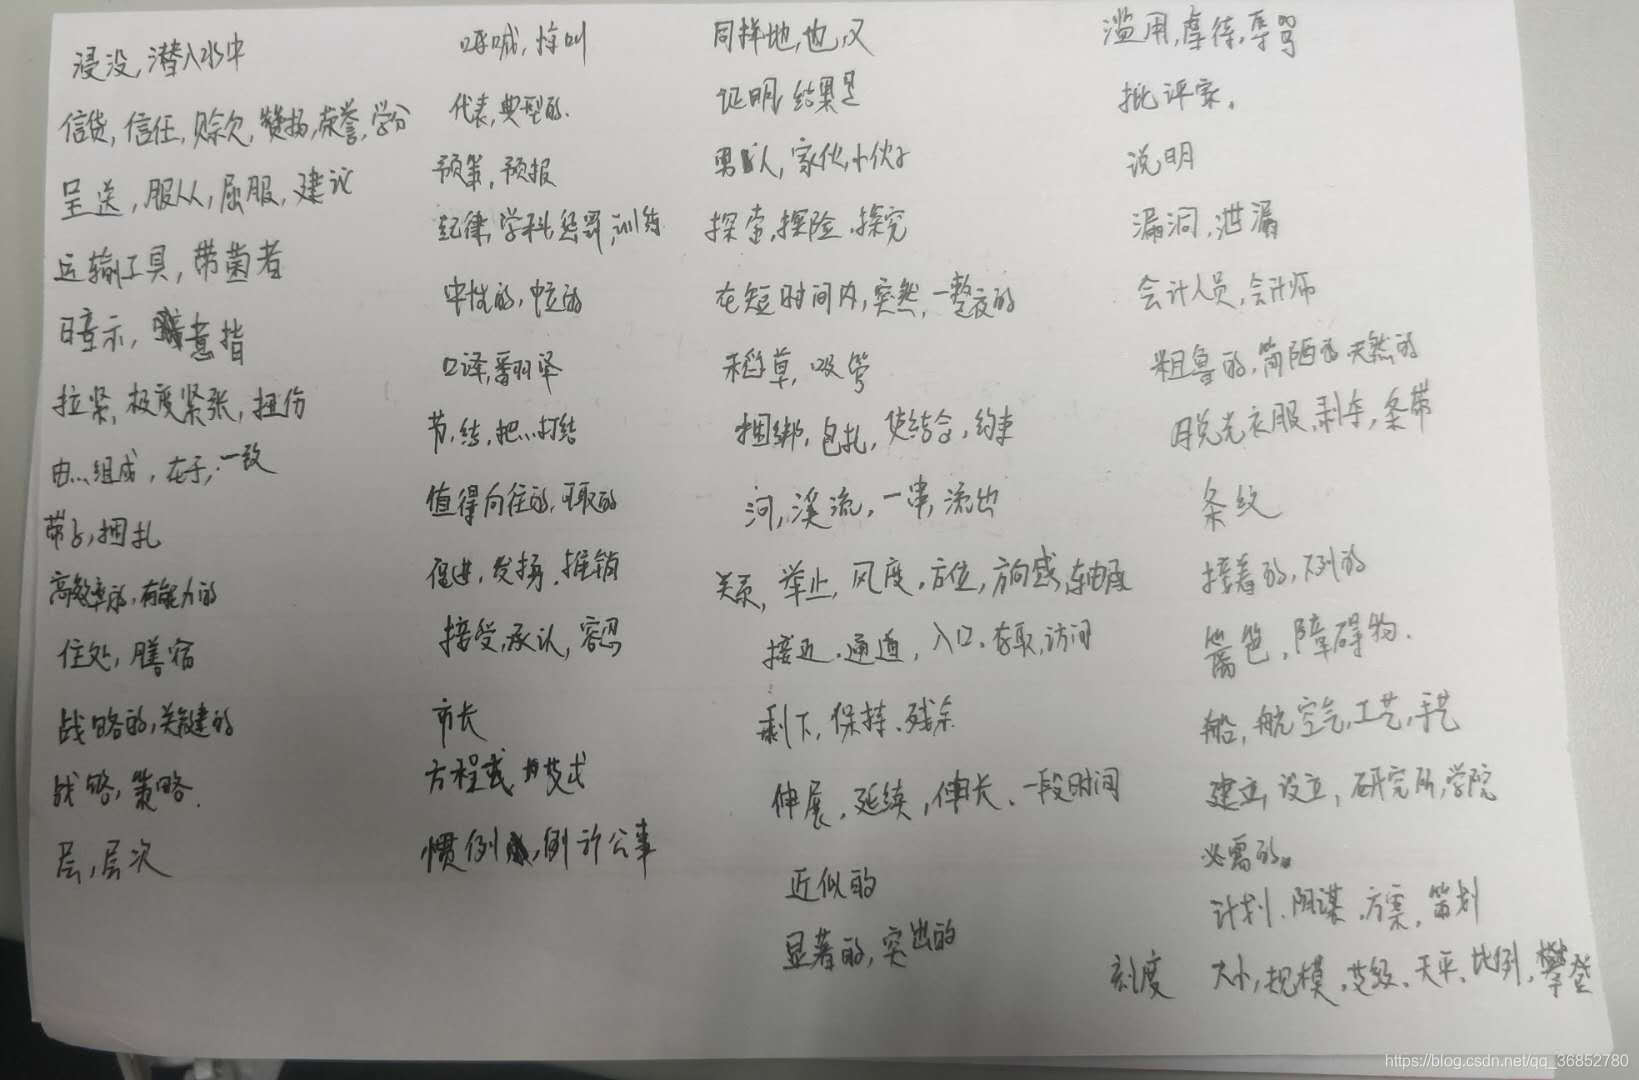 浸没,潜入水中
信贷,信任,赊欠,赞扬,荣誉,学分
呈送,服从,屈服,建议
运输工具,带菌者
暗示,意指
拉紧,极度紧张,扭伤
由...组成,在于,一致
带子,捆扎
高效率的,有能力的
住处,膳宿
战略的,关键的
战略,策略.
层,层次
呼喊,惊叫
代表,典型的.
预策,预报
纪律,学科,惩罚,训练
中性的,中立的
口译,翻译
节,结,把...打结
值得向往的,可取的
促进,发扬,推销
接受,承认,容忍
市长
方程式
惯例,例行公事
同样地,也,又
证明,结果是
男人,家伙,小伙子
探索,探险,探究
在短时间内,突然,一整夜的
稻草,吸管
捆绑,包扎,使结合,约束
河,溪流,一串,流出
关系,举止,风度,方位,方向感,轴承
接近.通道,入口.存取,访问
剩下,保持.残余
伸展.延续,伸长、一段时间
近似的
显著的,突出的
滥用,虐待,辱骂
批评家.
说明
漏洞,泄漏
会计人员,会计师
粗鲁的,简陋的,天然的
脱光衣服,剥夺,条带
条纹
接着的,下列的
篱笆,障碍物.
船,航空气,工艺,手艺
建立,设立,研究所,学院
必需的.
计划、阴谋.方案,策划
刻度 大小,规模.等级、天平、比例,攀登
https://blog.csdn.net/qq_36852780